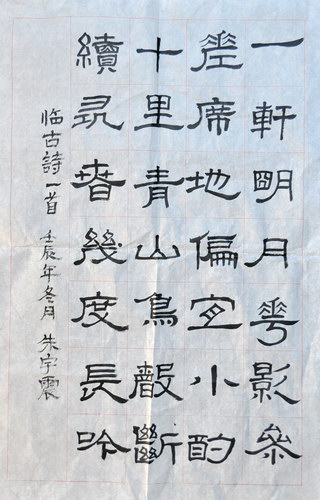 一軒明月華影參
差席地偏宜小酌
十里青山鳥聲斷
續尋春幾度長吟
临古詩一首 壬辰年冬月 朱宇震